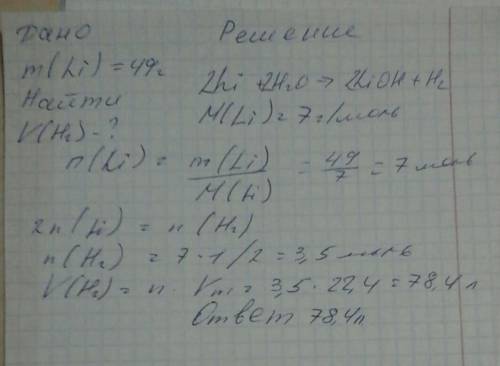 Дано
Решение
m(Li) = 49г
Найти
V(H₂) - ?
2Li + 2H₂O → 2LiOH + H₂
M(Li) = 7 г/моль
n(Li) = m(Li)/M(Li) = 49/7 = 7 моль
2n(Li) = n(H₂)
n(H₂) = 7·1/2 = 3,5 моль
V(H₂) = n · Vm = 3,5 · 22,4 = 78,4 л
Ответ 78,4л